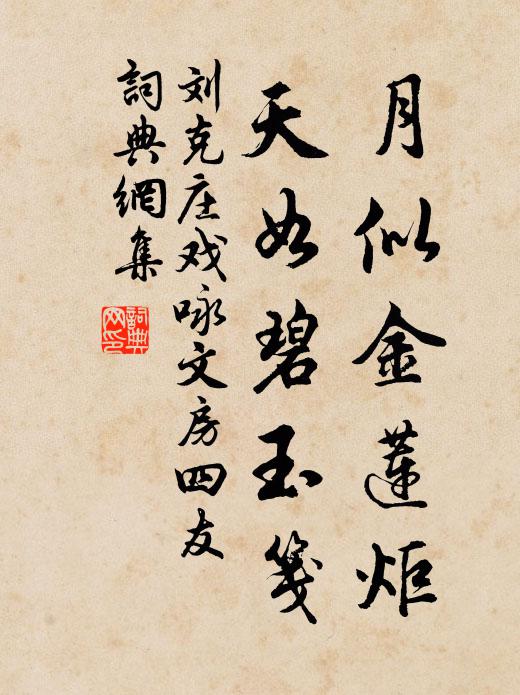 月似金蓮炬
天如碧玉箋
刘克庄戏咏文房四友
詞典網集
詞典网印